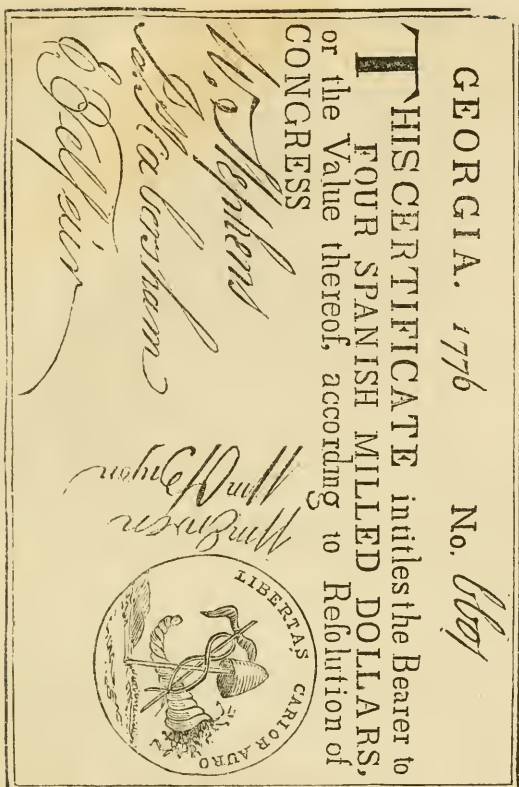 GEORGIA. 1776 No.
THIS CERTIFICATE intitles the Bearer to
FOUR SPANISH MILLED DOLLARS,
or the Value thereof, according to Reſolution of
CONGRESS
Wm Stephens
J. Habersham
E Telfair
Wm O Bryen
Wm Ewen
LIBERTAS CARIOR AURO